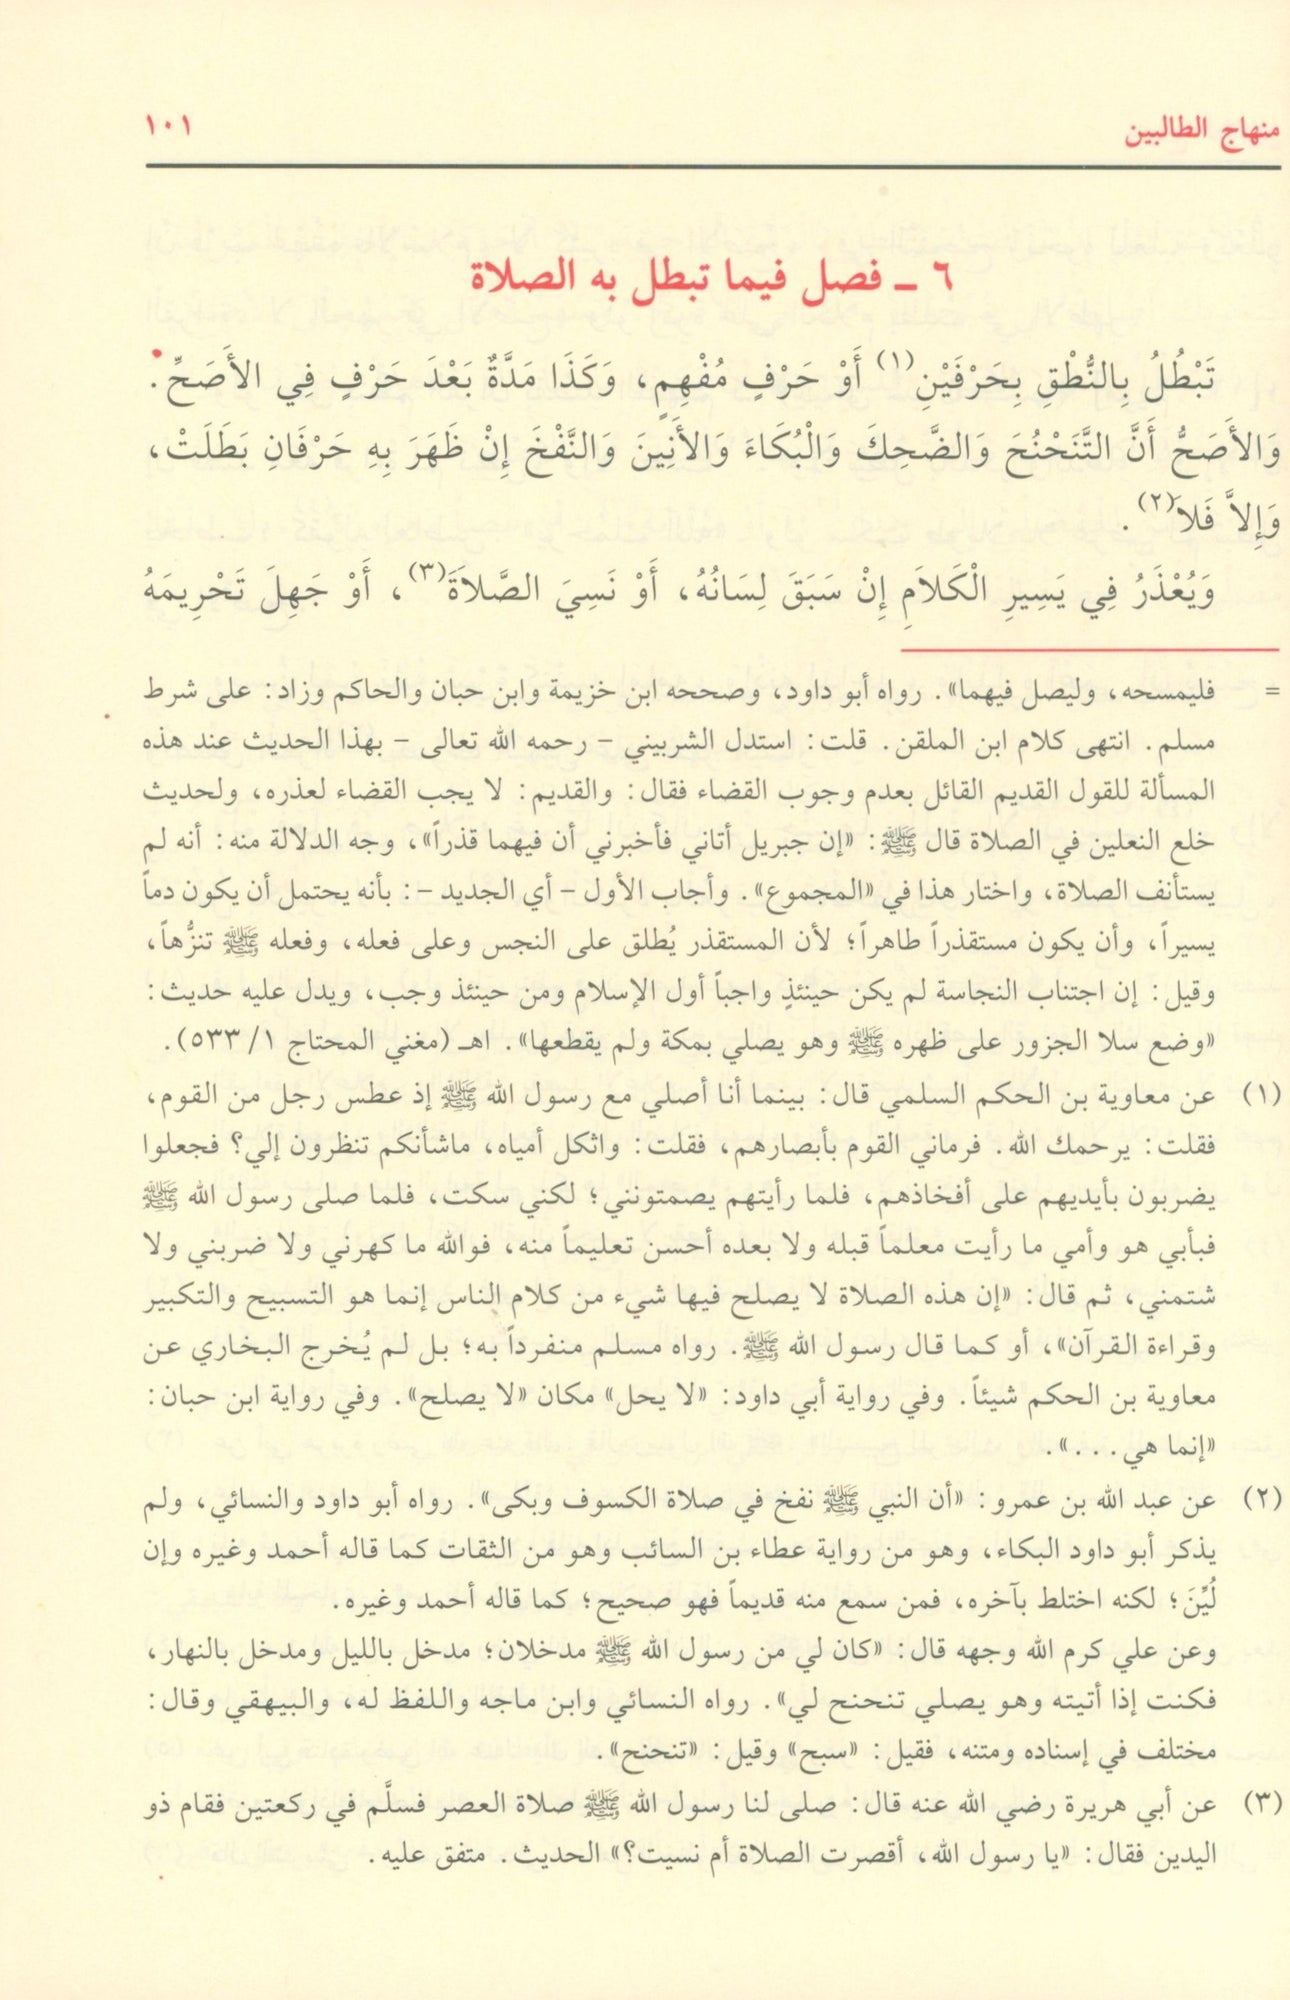 منهاج الطالبين ١٠١
٦ ـ فصل فيما تبطل به الصلاة
تَبْطُلُ بِالنُّطْقِ بِحَرْفَيْنِ(١) أَوْ حَرْفٍ مُفْهِمٍ، وَكَذَا مَدَّةٌ بَعْدَ حَرْفٍ فِي الأَصَحِّ.
وَالأَصَحُّ أَنَّ التَّنَحْنُحَ وَالضَّحِكَ وَالْبُكَاءَ وَالأَنِينَ وَالنَّفْخَ إِنْ ظَهَرَ بِهِ حَرْفَانِ بَطَلَتْ،
وَإِلاَّ فَلاَ(٢).
وَيُعْذَرُ فِي يَسِيرِ الْكَلاَمِ إِنْ سَبَقَ لِسَانُهُ، أَوْ نَسِيَ الصَّلاَةَ(٣)، أَوْ جَهِلَ تَحْرِيمَهُ
= فليمسحه، وليصل فيهما». رواه أبو داود، وصححه ابن خزيمة وابن حبان والحاكم وزاد: على شرط
مسلم. انتهى كلام ابن الملقن. قلت: استدل الشربيني – رحمه الله تعالى – بهذا الحديث عند هذه
المسألة للقول القديم القائل بعدم وجوب القضاء فقال: والقديم: لا يجب القضاء لعذره، ولحديث
خلع النعلين في الصلاة قال ﷺ: «إن جبريل أتاني فأخبرني أن فيهما قذراً»، وجه الدلالة منه: أنه لم
يستأنف الصلاة، واختار هذا في «المجموع». وأجاب الأول – أي الجديد –: بأنه يحتمل أن يكون دماً
يسيراً، وأن يكون مستقذراً طاهراً؛ لأن المستقذر يُطلق على النجس وعلى فعله، وفعله ﷺ تنزُّهاً،
وقيل: إن اجتناب النجاسة لم يكن حينئذٍ واجباً أول الإسلام ومن حينئذ وجب، ويدل عليه حديث:
«وضع سلا الجزور على ظهره ﷺ وهو يصلي بمكة ولم يقطعها». اهـ (مغني المحتاج ١/ ٥٣٣).
(١) عن معاوية بن الحكم السلمي قال: بينما أنا أصلي مع رسول الله ﷺ إذ عطس رجل من القوم،
فقلت: يرحمك الله. فرماني القوم بأبصارهم، فقلت: واثكل أمياه، ماشأنكم تنظرون إلي؟ فجعلوا
يضربون بأيديهم على أفخاذهم، فلما رأيتهم يصمتونني؛ لكني سكت، فلما صلى رسول الله ﷺ
فبأبي هو وأمي ما رأيت معلماً قبله ولا بعده أحسن تعليماً منه، فوالله ما كهرني ولا ضربني ولا
شتمني، ثم قال: «إن هذه الصلاة لا يصلح فيها شيء من كلام الناس إنما هو التسبيح والتكبير
وقراءة القرآن»، أو كما قال رسول الله ﷺ. رواه مسلم منفرداً به؛ بل لم يُخرج البخاري عن
معاوية بن الحكم شيئاً. وفي رواية أبي داود: «لا يحل» مكان «لا يصلح». وفي رواية ابن حبان:
«إنما هي...».
(٢) عن عبد الله بن عمرو: «أن النبي ﷺ نفخ في صلاة الكسوف وبكى». رواه أبو داود والنسائي، ولم
يذكر أبو داود البكاء، وهو من رواية عطاء بن السائب وهو من الثقات كما قاله أحمد وغيره وإن
لُيِّنَ؛ لكنه اختلط بآخره، فمن سمع منه قديماً فهو صحيح؛ كما قاله أحمد وغيره.
وعن علي كرم الله وجهه قال: «كان لي من رسول الله ﷺ مدخلان؛ مدخل بالليل ومدخل بالنهار،
فكنت إذا أتيته وهو يصلي تنحنح لي». رواه النسائي وابن ماجه واللفظ له، والبيهقي وقال:
مختلف في إسناده ومتنه، فقيل: «سبح» وقيل: «تنحنح».
(٣) عن أبي هريرة رضي الله عنه قال: صلى لنا رسول الله ﷺ صلاة العصر فسلَّم في ركعتين فقام ذو
اليدين فقال: «يا رسول الله، أقصرت الصلاة أم نسيت؟» الحديث. متفق عليه.